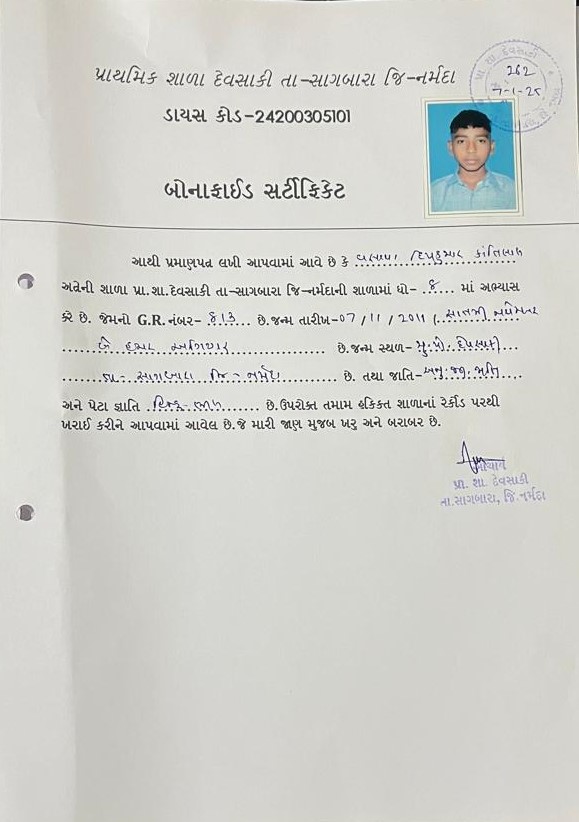 પ્રાથમિક શાળા દેવસાકી તા-સાગબારા જિ-નર્મદા
262
7-1-25
ડાયસ કોડ-24200305101
બોનાફાઈડ સર્ટીફિકેટ
આથી પ્રમાણપત્ર લખી આપવામાં આવે છે કે વસાવા દિપકુમાર કાંતિલાલ
અત્રેની શાળા પ્રા.શા.દેવસાકી તા-સાગબારા જિ-નર્મદાની શાળામાં ધો- 8 માં અભ્યાસ
કરે છે. જેમનો G.R. નંબર- 813 છે.જન્મ તારીખ-07/11/2011 (સાતમી નવેમ્બર
બે હજાર અગિયાર છે.જન્મ સ્થળ- મુ.પો. દેવસાકી
તા- સાગબારા જિ- નર્મદા છે. તથા જાતિ- અનુ.જન જાતિ
અને પેટા જ્ઞાતિ હિન્દુ-ભીલ છે.ઉપરોક્ત તમામ હકિકત શાળાનાં રેર્કોડ પરથી
ખરાઈ કરીને આપવામાં આવેલ છે.જે મારી જાણ મુજબ ખરુ અને બરાબર છે.
આચાર્ય
પ્રા. શા. દેવસાકી
તા.સાગબારા, જિ.નર્મદા